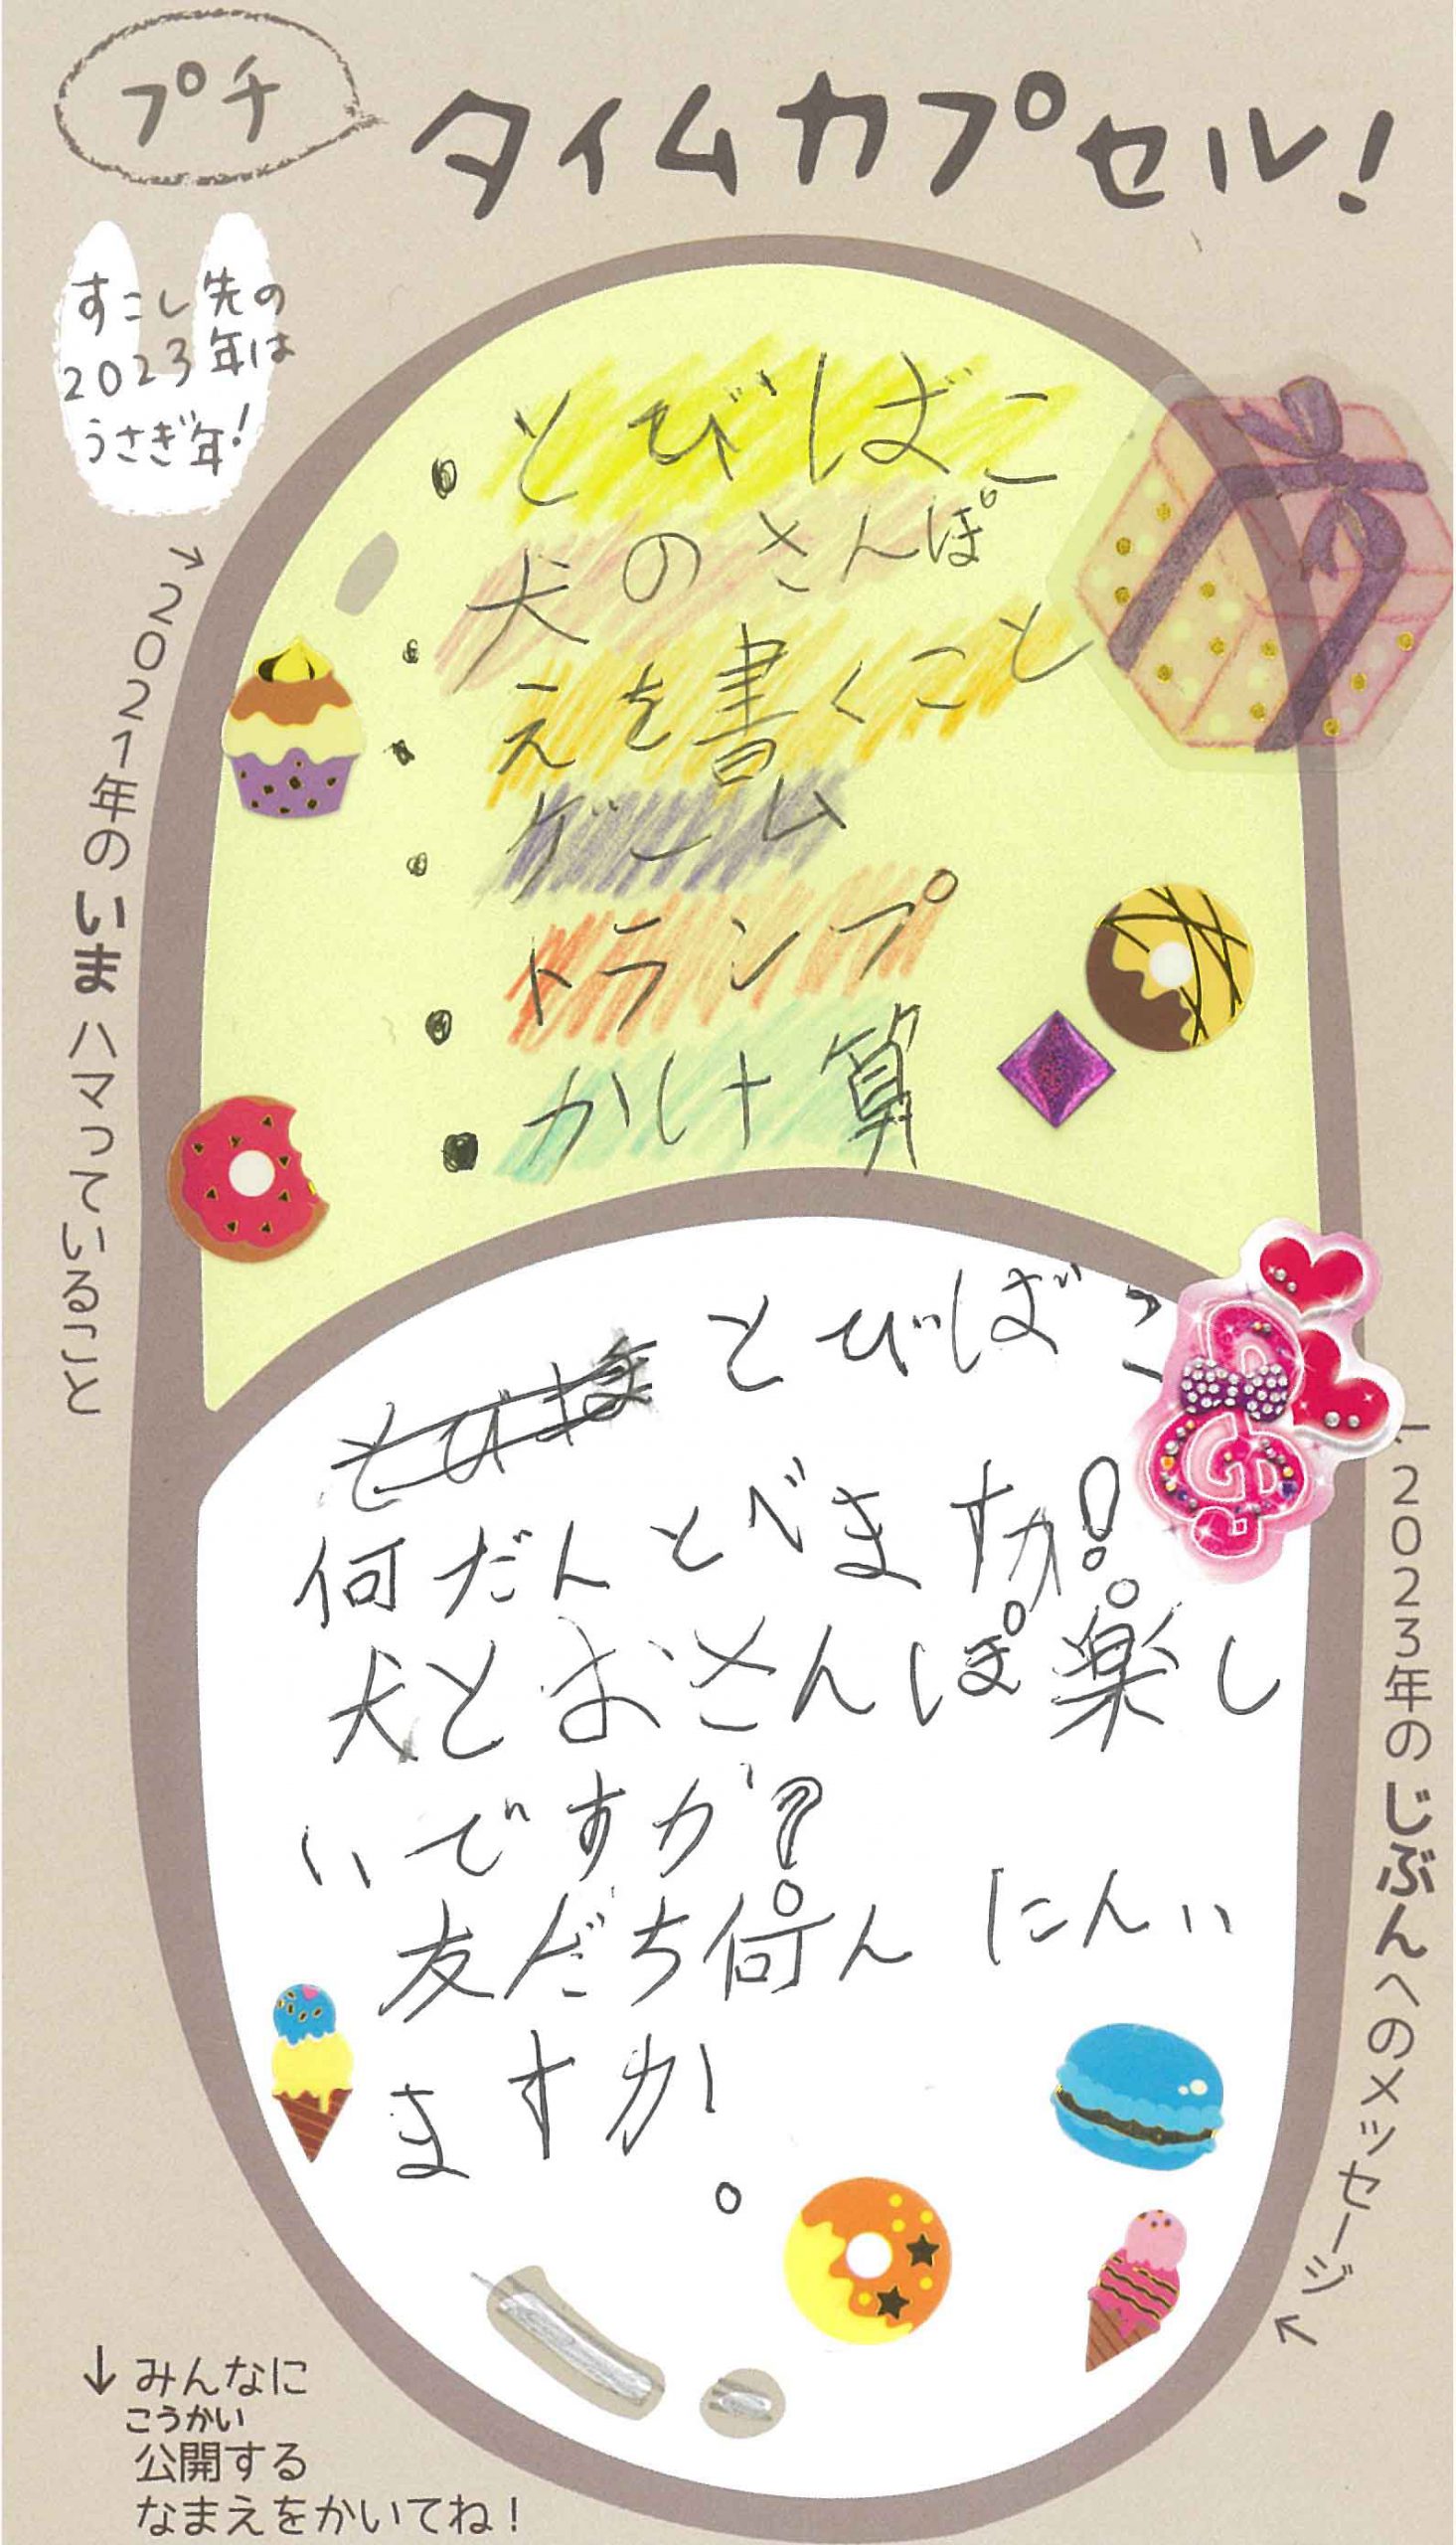 プチ
タイムカプセル!
すこし先の
2023年は
うさぎ年!
→2021年のいまハマっていること
・とびばこ
犬のさんぽ
・えを書くこと
・ゲーム
・トランプ
・かけ算
とびばこ
何だんとべますか!
犬とおさんぽ楽し
いですか?
友だち何んにんい
ますか。
2023年のじぶんへのメッセージ
↓みんなに
こうかい
公開する
なまえをかいてね!